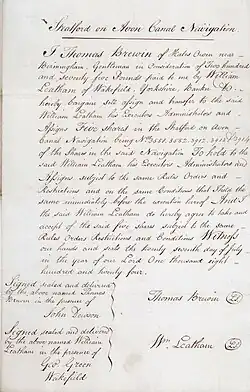 Stratford on Avon Canal Navigation
I Thomas Brewin of Hales Owen near
Birmingham Gentleman in Consideration of Two hundred
and seventy five Pounds paid to me by William
Leatham of Wakefield, Yorkshire, Banker Do
hereby bargain sell assign and transfer to the said
William Leatham his Executors Administrators and
Assigns Five shares in the Stratford on Avon
Canal Navigation being
of the Shares in the said Navigation To Hold to the
said William Leatham his Executors Administrators and
Assigns subject to the same Rules Orders and
Restrictions and on the same Conditions that I held the
same immediately before the execution hereof And I
the said William Leatham do hereby agree to take and
accept of the said five shares subject to the same
Rules Orders Restrictions and Conditions Witness
our hands and seals the twenty seventh day of July
in the year of our Lord One thousand eight
hundred and twenty four.
Signed sealed and delivered
by the above named Thomas
Brewin in the presence of
John Dawson
Thomas Brewin
Signed sealed and delivered
by the above named William
Leatham in the presence of
Geo Green
Wakefield
Wm Leatham